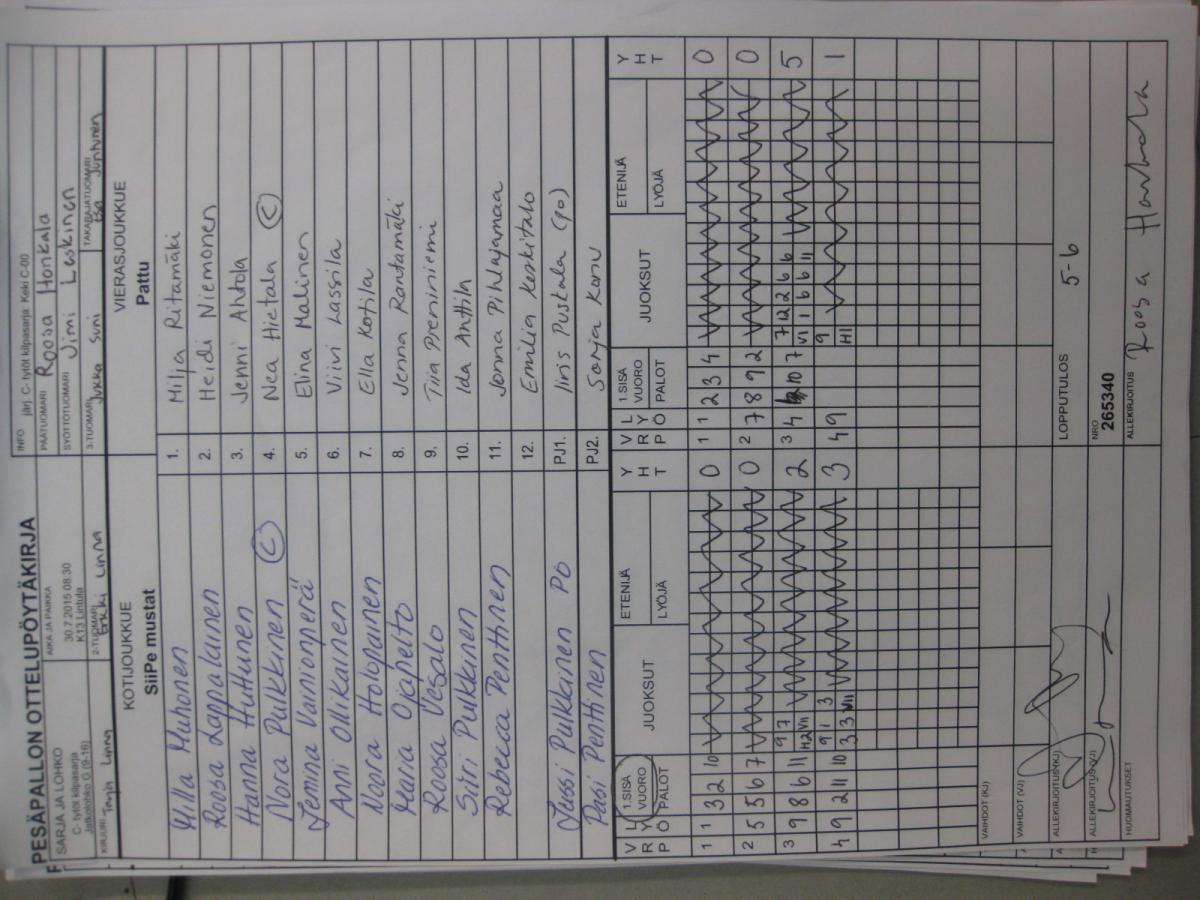 PESÄPALLON OTTELUPÖYTÄKIRJA
SARJA JA LOHKO
C- tytöt kilpasarja
Jatkolohko G (9-16)
AIKA JA PAIKKA
30.7.2015 08:30
K13 Lintula
INFO järj. C- tytöt kilpasarja: Keki C-00
PÄÄTUOMARI Roosa Honkala
SYÖTTÖTUOMARI Jimi Leskinen
KIRJURI Tenja Linna
2-TUOMARI Erkki Linna
3-TUOMARI Jukka Suni
TAKARAJATUOMARI Juntunen
KOTIJOUKKUE
SiiPe mustat
VIERASJOUKKUE
Pattu
Milla Muhonen 1. Milja Ritamäki
Roosa Lappalainen 2. Heidi Niemonen
Hanna Huttunen 3. Jenni Ahtola
Nora Pulkkinen (C) 4. Nea Hietala (C)
Jemina Vainionperä 5. Elina Malinen
Anni Ollikainen 6. Viivi Lassila
Noora Holopainen 7. Ella Kotila
Maria Ojapelto 8. Jenna Rantamäki
Roosa Vesalo 9. Tiia Preniniemi
Siiri Pulkkinen 10. Ida Anttila
Rebecca Penttinen 11. Jonna Pihlajamaa
12. Emilia Keskitalo
Jussi Pulkkinen PÖ PJ1. Iiris Puskala (po)
Pasi Penttinen PJ2. Sonja Konu
VRP LYÖ 1.SISÄ VUORO PALOT JUOKSUT ETENIJÄ LYÖJÄ YHT VRP LYÖ 1.SISÄ VUORO PALOT JUOKSUT ETENIJÄ LYÖJÄ YHT
1 1 3 2 10 0 1 1 2 3 4 0
2 5 5 6 7 0 2 7 8 9 2 0
3 9 8 6 11 9 7 2 3 4 10 7 7 12 2 6 6 5
VI 1 6 6 11
4 9 2 11 10 9 1 3 3 4 9 9 1
3 3 VII H1
VAIHDOT (KJ)
VAIHDOT (VJ)
ALLEKIRJOITUS (KJ)
LOPPUTULOS 5-6
ALLEKIRJOITUS (VJ)
NRO
265340
HUOMAUTUKSET
ALLEKIRJOITUS Roosa Honkala